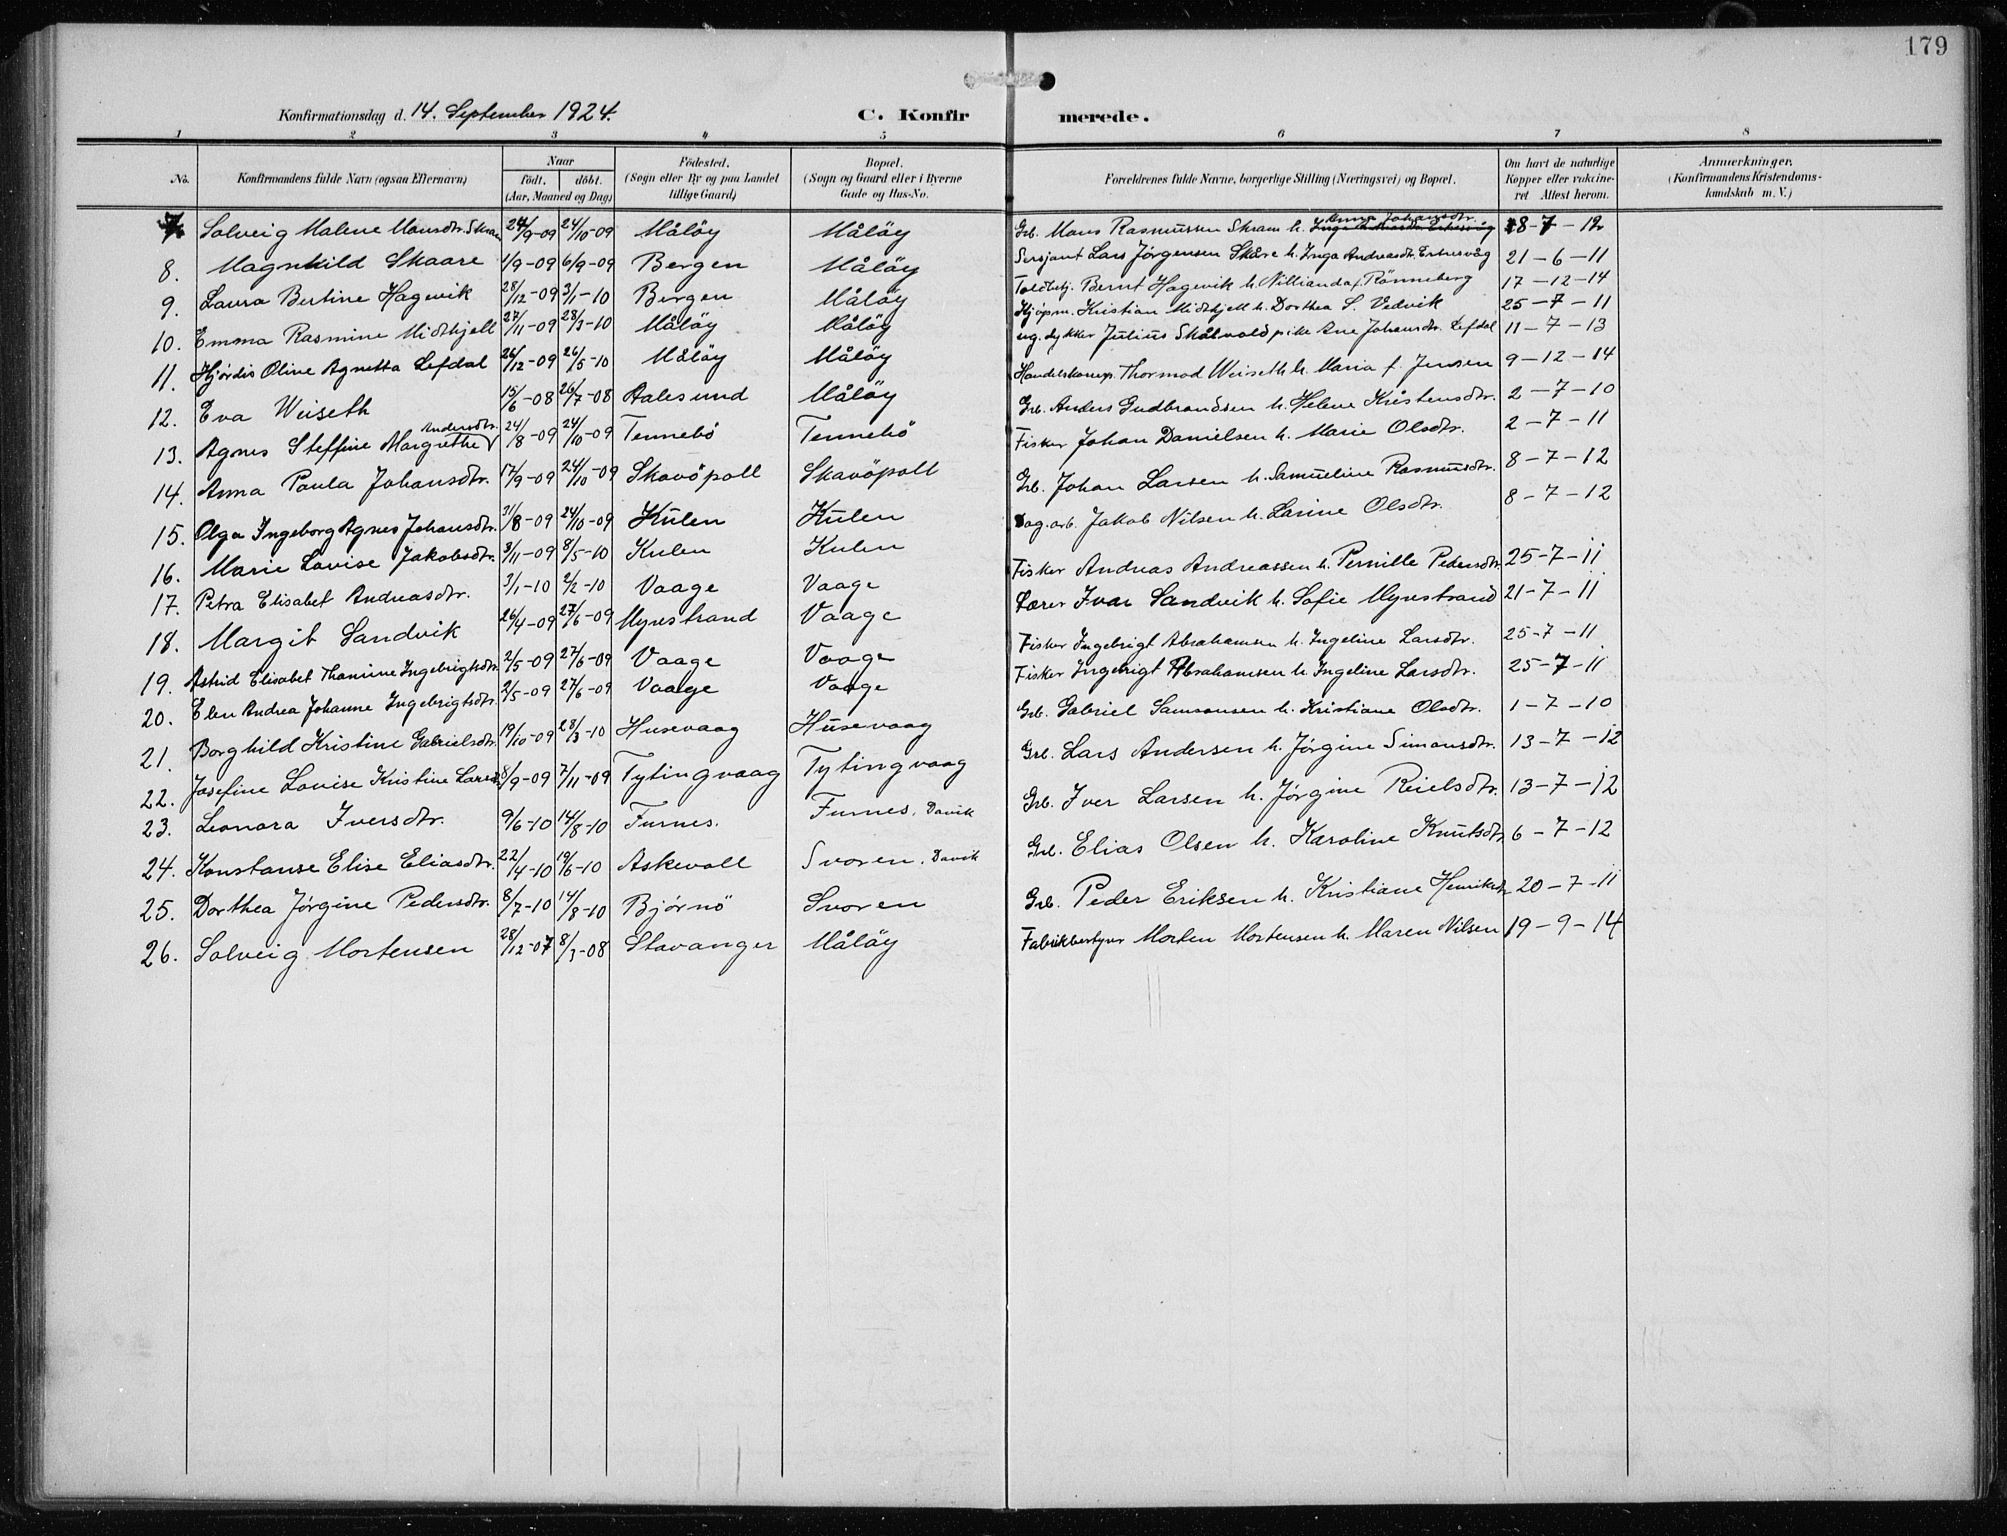 179
Konfirmationsdag d. 14. September 1924. C. Konfirmerede.
1 2 3 4 5 6 7 8
No. Konfirmandens fulde Navn (ogsaa Efternavn) Naar födt. döbt. (Aar, Maaned og Dag) Födested. (Sogn eller By og paa Landet tillige Gaard) Bopæl. (Sogn og Gaard eller i Byerne Gade og Hus-No. Forældrenes fulde Navne, borgerlige Stilling (Næringsvei) og Bopæl. Om havt de naturlige Kopper eller vaccineret Attest herom. Anmærkninger. (Konfirmandens Kristendomskundskab m. V.)
7. Solveig Malene Monsdtr. Skram 24/9-09 24/10-09 Måløy Måløy Grb. Mons Rasmussen Skram h. Anna Johansdtr. 8-7-12
8. Magnhild Skaare 1/9-09 6/9-09 Bergen Måløy Sersjant Lars Jørgensen Skåre h. Inga Andreasdtr. Ertresvåg 21-6-11
9. Laura Bertine Hagevik 28/12-09 3/1-10 Bergen Måløy Toldbetj. Bernt Hagevik h. f. Rönneberg 17-12-14
10. Emma Rasmine Midthjell 27/11-09 28/3-10 Måløy Måløy Kjøpm. Kristian Midthjell h. Dorthea S. Vedvik 25-7-11
11. Hjørdis Oline Agnetta Lefdal 26/12-09 26/5-10 Måløy Måløy ug. dykker Julius Skålvold pike Ane Johansdtr. Lefdal 11-7-13
12. Eva Weiseth 15/6-08 26/7-08 Aalesund Måløy Handelskomp. Thormod Weiseth h. Maria f. Jensen 9-12-14
13. Agnes Steffine Margrethe Andersdtr. 24/8-09 24/10-09 Tennebö Tennebö Grb. Anders Gudbrandsen h. Helene Kristensdtr. 2-7-10
14. Anna Paula Johansdtr. 17/9-09 24/10-09 Skavöpoll Skavöpoll Fisker Johan Danielsen h. Marie Olsdtr. 2-7-11
15. Olga Ingeborg Agnes Johansdtr. 31/8-09 24/10-09 Kulen Kulen Grb. Johan Larsen h. Samueline Rasmusdtr. 8-7-12
16. Marie Lovise Jakobsdtr. 3/11-09 8/5-10 Kulen Kulen Dag.arb. Jakob Nilsen h. Larine Olsdtr. 8-7-12
17. Petra Elisabet Andreasdtr. 3/1-10 2/2-10 Vaage Vaage Fisker Andreas Andreassen h. Pernille Pedersdtr. 25-7-11
18. Margit Sandvik 26/4-09 27/6-09 Myrestrand Vaage Lærer Ivar Sandvik h. Sofie Myrestrand 21-7-11
19. Astrid Elisabet Thamine Ingebrigtsdtr. 2/5-09 27/6-09 Vaage Vaage Fisker Ingebrigt Abrahamsen h. Ingeline Larsdtr. 25-7-11
20. Elen Andrea Johanne Ingebrigtsdtr. 2/5-09 27/6-09 Vaage Vaage Fisker Ingebrigt Abrahamsen h. Ingeline Larsdtr. 25-7-11
21. Borghild Kristine Gabrielsdtr. 19/10-09 28/3-10 Husevaag Husevaag Grb. Gabriel Samsonsen h. Kristiane Olsdtr. 1-7-10
22. Josefine Lovise Kristine Larsd. 8/9-09 7/11-09 Tytingvaag Tytingvaag Grb. Lars Andersen h. Jørgine Simonsdtr. 13-7-12
23. Leonora Iversdtr. 9/6-10 14/8-10 Furnes. Furnes, Davik Grb. Iver Larsen h. Jørgine Reielsdtr. 13-7-12
24. Konstanse Elise Eliasdtr. 22/4-10 19/6-10 Askevoll Svoren, Davik Grb. Elias Olsen h. Karoline Knutsdtr. 6-7-12
25. Dorthea Jörgine Pedersdtr. 8/7-10 14/8-10 Bjørnö Svoren Grb. Peder Eriksen h. Kristiane Henriksdtr. 20-7-11
26. Solveig Mortensen 28/12-07 8/3-08 Stavanger Måløy Fabrikbestyrer Morten Mortensen h. Maren Nilsen 19-9-14